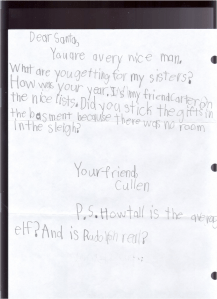 Dear Santa,
You are a very nice man.
What are you getting for my sisters?
How was your year. Is my friend carter on
the nice lists. Did you stick the gifts in
the basment because there was no room
in the sleigh?
Your friend,
Cullen
P.S. How tall is the average
elf? And is Rudolph real?